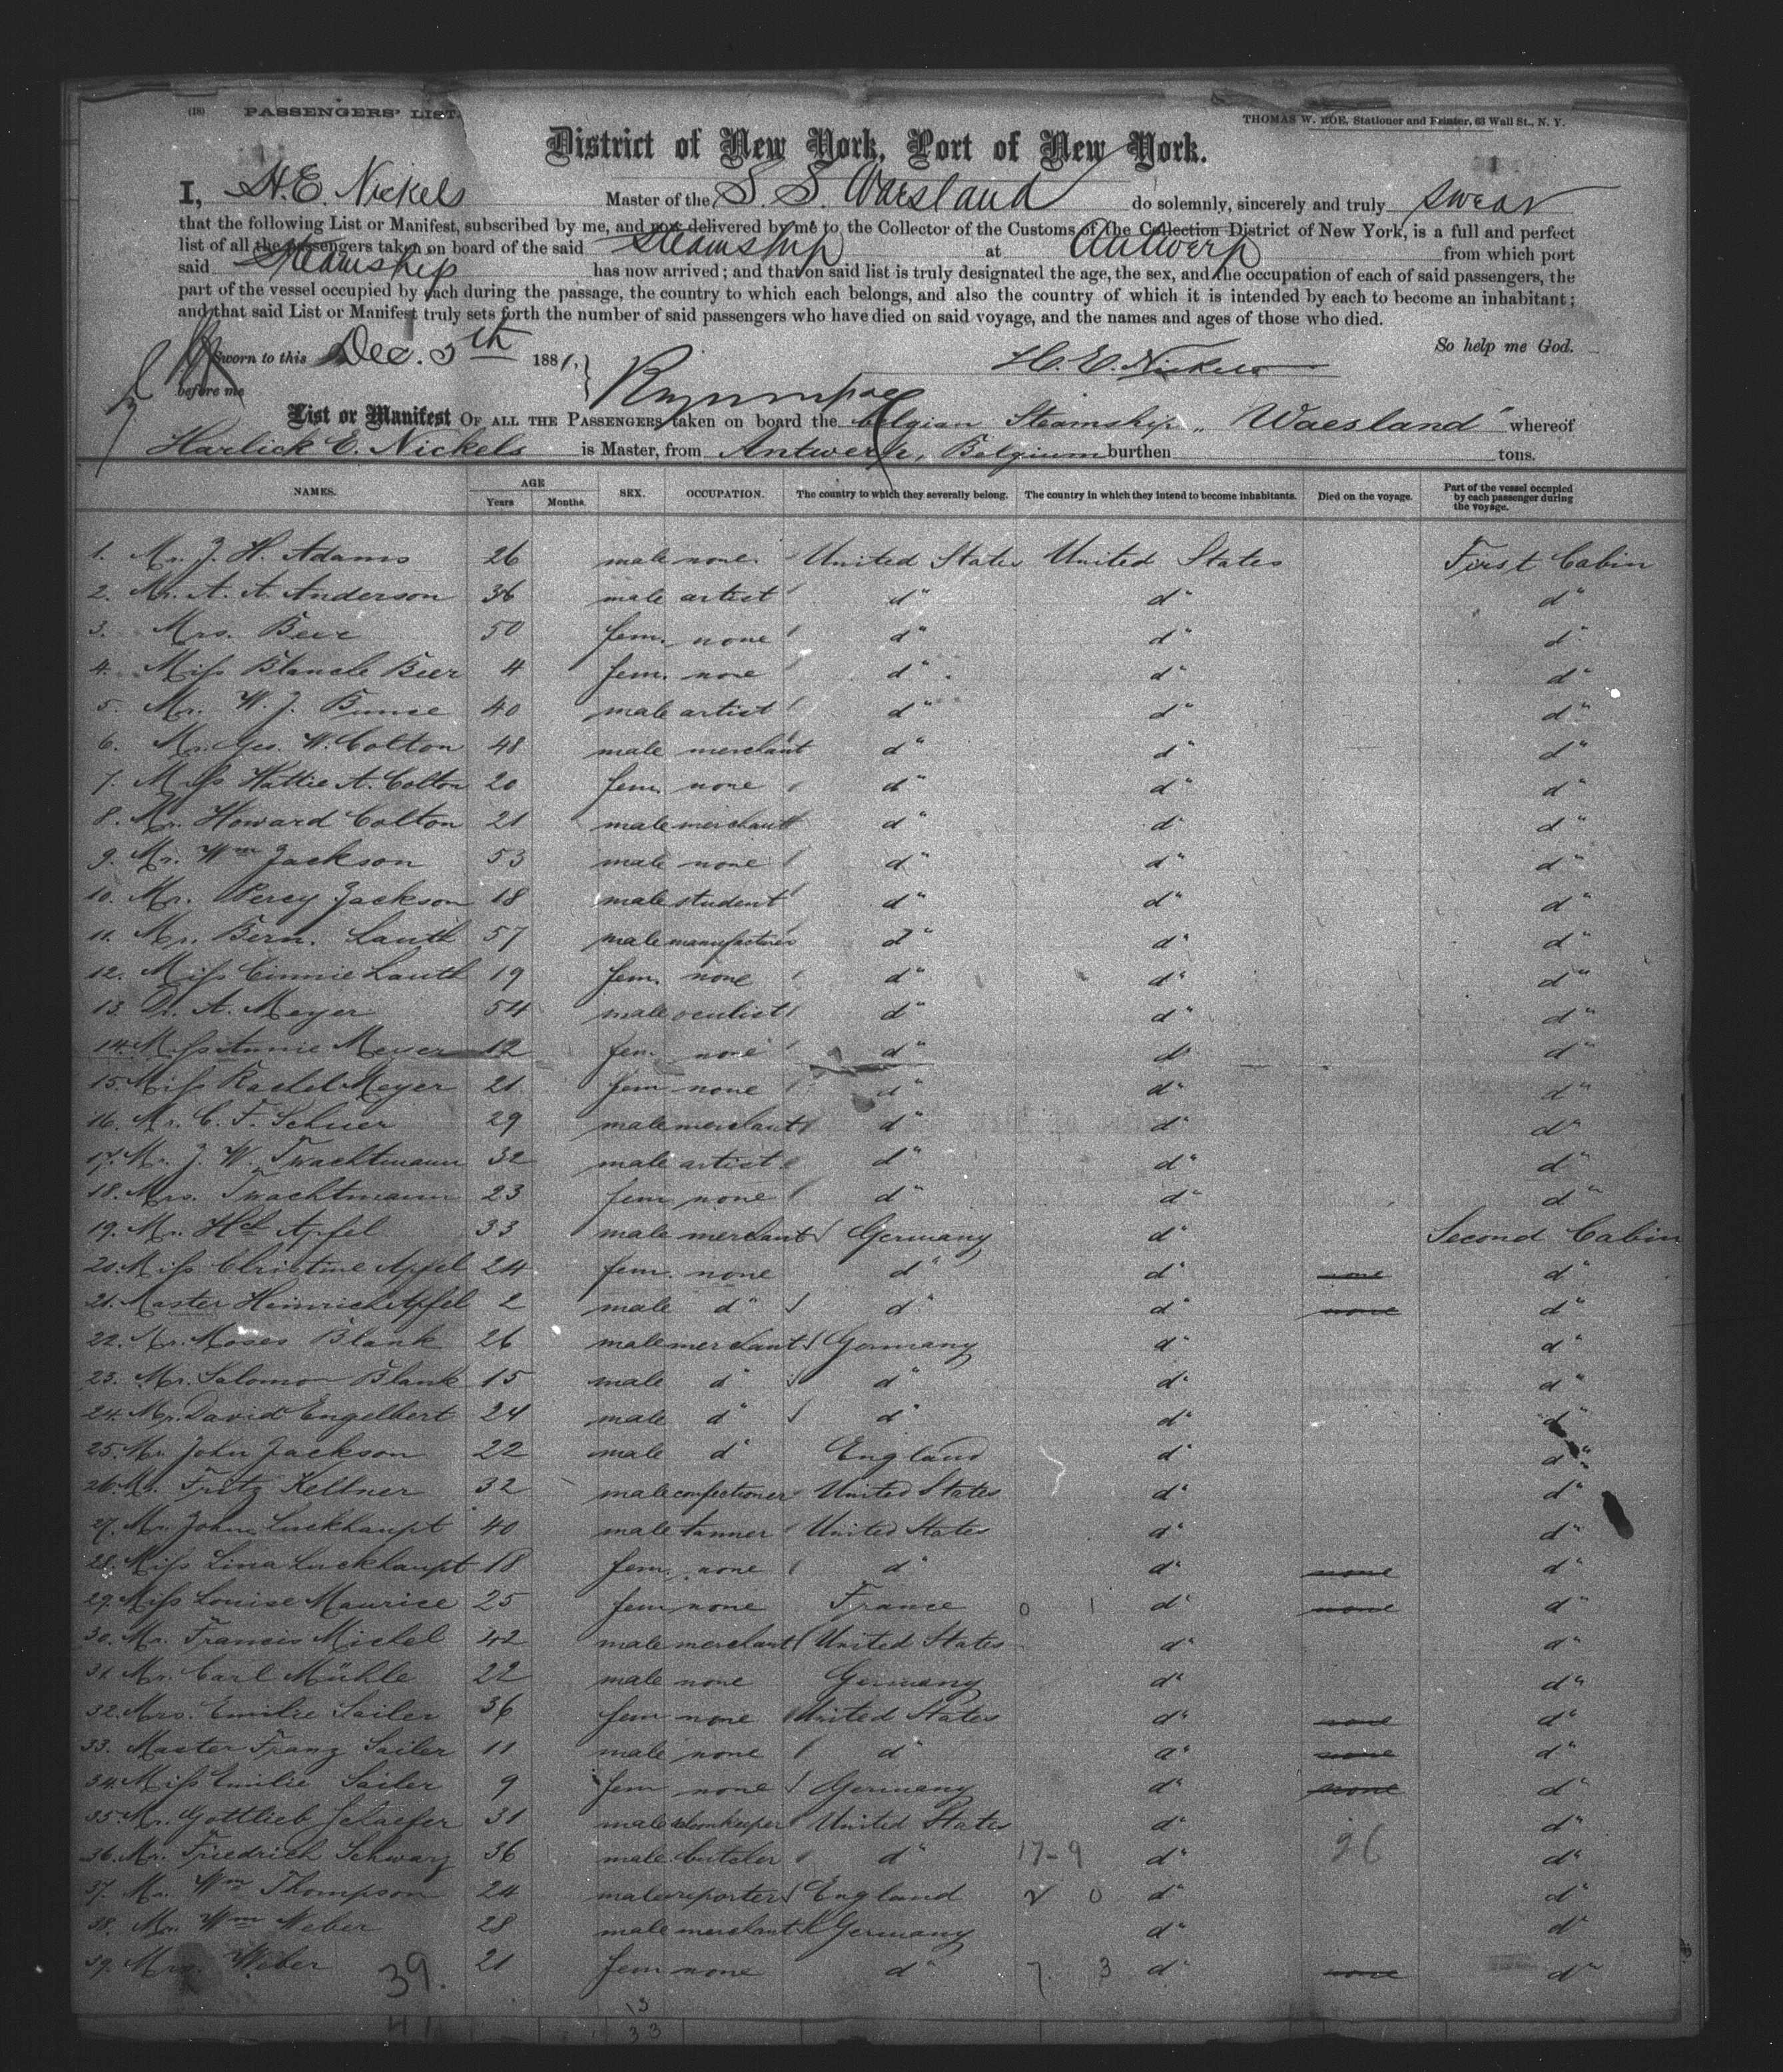 (18) PASSENGERS' LIST.
THOMAS W. ROE, Stationer and Printer, 63 Wall St., N. Y.
District of New York, Port of New York.
I, H. E. Nickels Master of the S. S. Waesland do solemnly, sincerely and truly swear
that the following List or Manifest, subscribed by me, and now delivered by me to the Collector of the Customs of the Collection District of New York, is a full and perfect
list of all the passengers taken on board of the said Steamship at Antwerp from which port
said Steamship has now arrived; and that on said list is truly designated the age, the sex, and the occupation of each of said passengers, the
part of the vessel occupied by each during the passage, the country to which each belongs, and also the country of which it is intended by each to become an inhabitant;
and that said List or Manifest truly sets forth the number of said passengers who have died on said voyage, and the names and ages of those who died.
So help me God.
Sworn to this Dec. 5th 1881, H. E. Nickels
before me
List or Manifest OF ALL THE PASSENGERS taken on board the Belgian Steamship "Waesland" whereof
Harlick E. Nickels is Master, from Antwerp, Belgium burthen tons.
NAMES. AGE Years Months. SEX. OCCUPATION. The country to which they severally belong. The country in which they intend to become inhabitants. Died on the voyage. Part of the vessel occupied by each passenger during the voyage.
1. Mr. J. H. Adams 26 male none United States United States First Cabin
2. Mr. A. A. Anderson 36 male artist d" d" d"
3. Mrs. Beer 50 fem. none d" d" d"
4. Miss Blanche Beer 4 fem. none d" d" d"
5. Mr. W. J. Bunce 40 male artist d" d" d"
6. Mr. Geo. W. Colton 48 male merchant d" d" d"
7. Miss Hattie A. Colton 20 fem. none d" d" d"
8. Mr. Howard Colton 21 male merchant d" d" d"
9. Mr. Wm Jackson 53 male none d" d" d"
10. Mr. Percy Jackson 18 male student d" d" d"
11. Mr. Bern. Lauth 57 male manufacturer d" d" d"
12. Miss Cinnie Lauth 19 fem. none d" d" d"
13. Dr. A. Meyer 54 male oculist d" d" d"
14. Miss Annie Meyer 12 fem. none d" d" d"
15. Miss Rachel Meyer 21 fem none d" d" d"
16. Mr. C. F. Scheer 29 male merchant d" d" d"
17. Mr. J. W. Twachtmann 32 male artist d" d" d"
18. Mrs. Twachtmann 23 fem none d" d" d"
19. Mr. Hch Apfel 33 male merchant Germany d" Second Cabin
20. Miss Christine Apfel 24 fem. none d" d" none d"
21. Master Heinrich Apfel 2 male d" d" d" none d"
22. Mr. Moses Blank 26 male merchant Germany d" d"
23. Mr. Salomon Blank 15 male d" d" d" d"
24. Mr. David Engelbert 24 male d" d" d" d"
25. Mr. John Jackson 22 male d" England d" d"
26. Mr. Fritz Kellner 32 male confectioner United States d" d"
27. Mr. John Luckhaupt 40 male tanner United States d" d"
28. Miss Lina Luckhaupt 18 fem. none d" d" none d"
29. Miss Louise Maurice 25 fem none France 0 1 d" none d"
30. Mr. Francis Michel 42 male merchant United States d" d"
31. Mr. Carl Mühle 22 male none Germany d" d"
32. Mrs. Emilie Sailer 36 fem none United States d" none d"
33. Master Franz Sailer 11 male none d" d" none d"
34. Miss Emilie Sailer 9 fem none Germany d" none d"
35. Mr. Gottlieb Schaefer 31 male saloonkeeper United States d" d"
36. Mr. Friedrich Schwarz 36 male butcher d" 17-9 d" 26 d"
37. Mr. Wm Thompson 24 male reporter England 2 0 d" d"
38. Mr. Wm Weber 28 male merchant Germany d" d"
39. Mrs. Weber 21 fem none d" 7. 3 d" none d"
39.
13
33